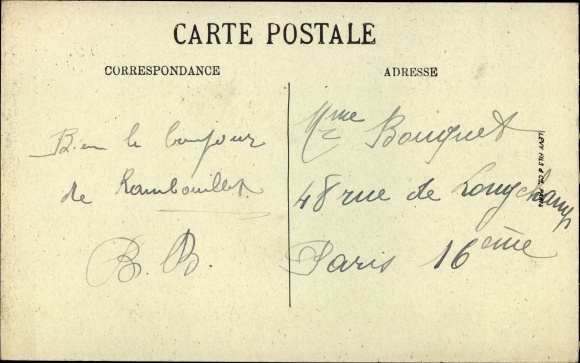 CARTE POSTALE
CORRESPONDANCE
ADRESSE
Bien le bonjour
de Rambouillet.
B. B.
Mme Bouquet
48 rue de Longchamp
Paris 16ème
LEVY FILS & Cie, PARIS